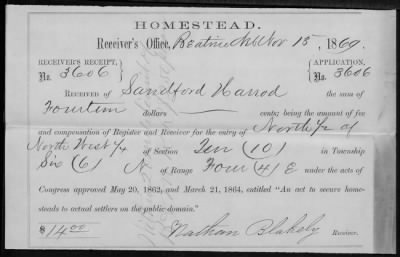 HOMESTEAD.
Receiver's Office, Beatrice Neb Nov 15, 1869.
RECEIVER'S RECEIPT, No. 3606
APPLICATION, No. 3606
RECEIVED OF Sandford Harrod the sum of
Fourteen dollars cents; being the amount of fee
and compensation of Register and Receiver for the entry of North 1/2 of
North West 1/4 of Section Ten (10) in Township
Six (6) N of Range Four (4) E under the acts of
Congress approved May 20, 1862, and March 21, 1864, entitled "An act to secure home-
steads to actual settlers on the public domain."
$14.00 Nathan Blakely Receiver.